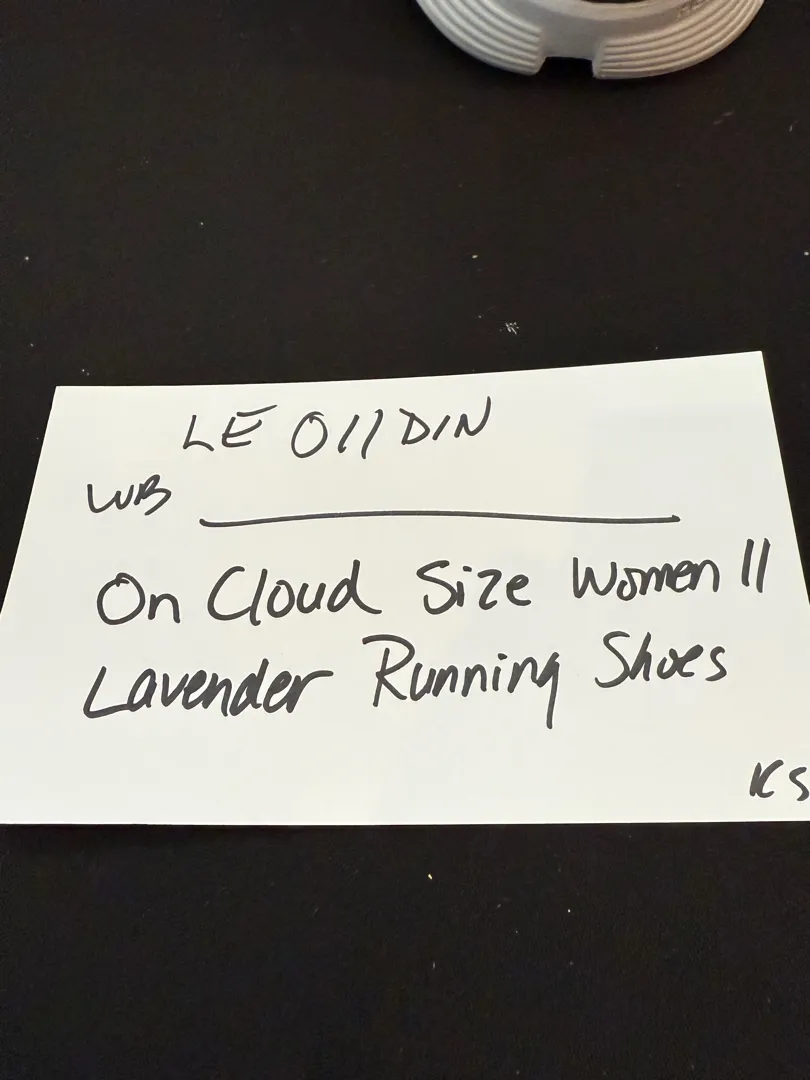 LE 011 DIN
WB
On Cloud Size Women 11
Lavender Running Shoes
KS